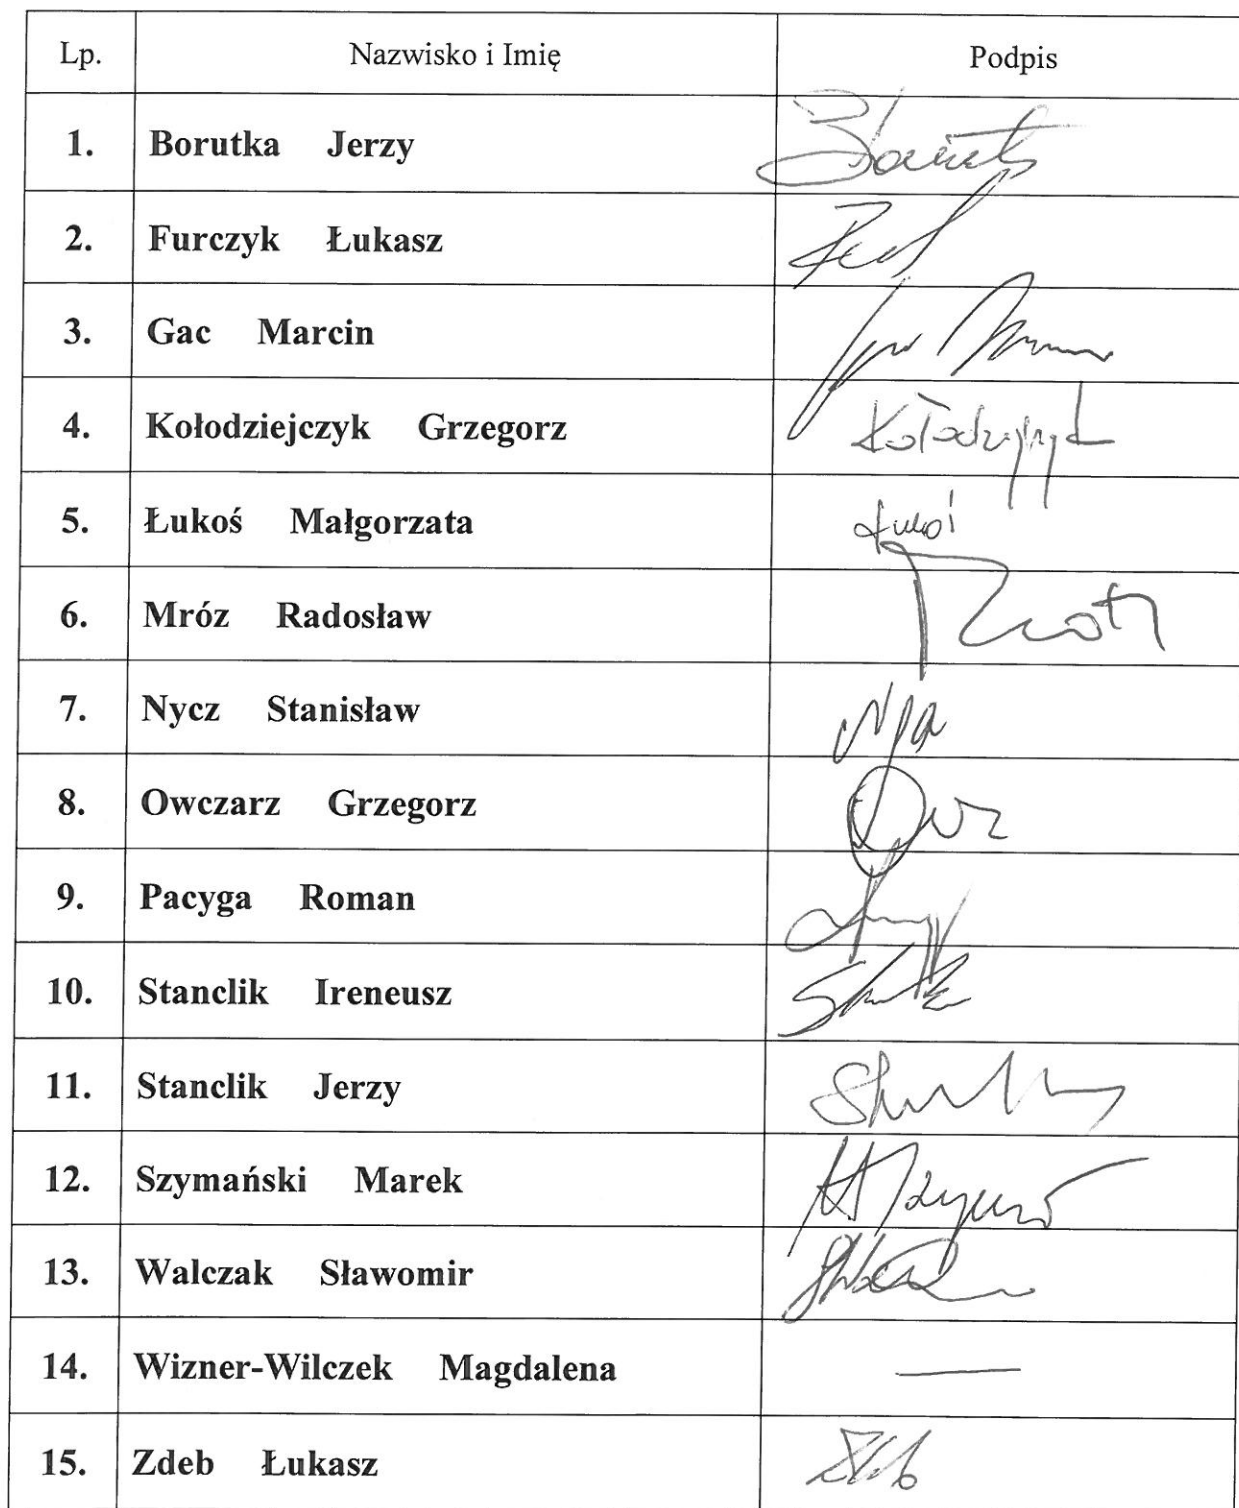 Lp. Nazwisko i Imię Podpis
1. Borutka Jerzy
2. Furczyk Łukasz
3. Gac Marcin
4. Kołodziejczyk Grzegorz
5. Łukoś Małgorzata Łukoś
6. Mróz Radosław
7. Nycz Stanisław
8. Owczarz Grzegorz
9. Pacyga Roman
10. Stanclik Ireneusz
11. Stanclik Jerzy
12. Szymański Marek
13. Walczak Sławomir
14. Wizner-Wilczek Magdalena —
15. Zdeb Łukasz